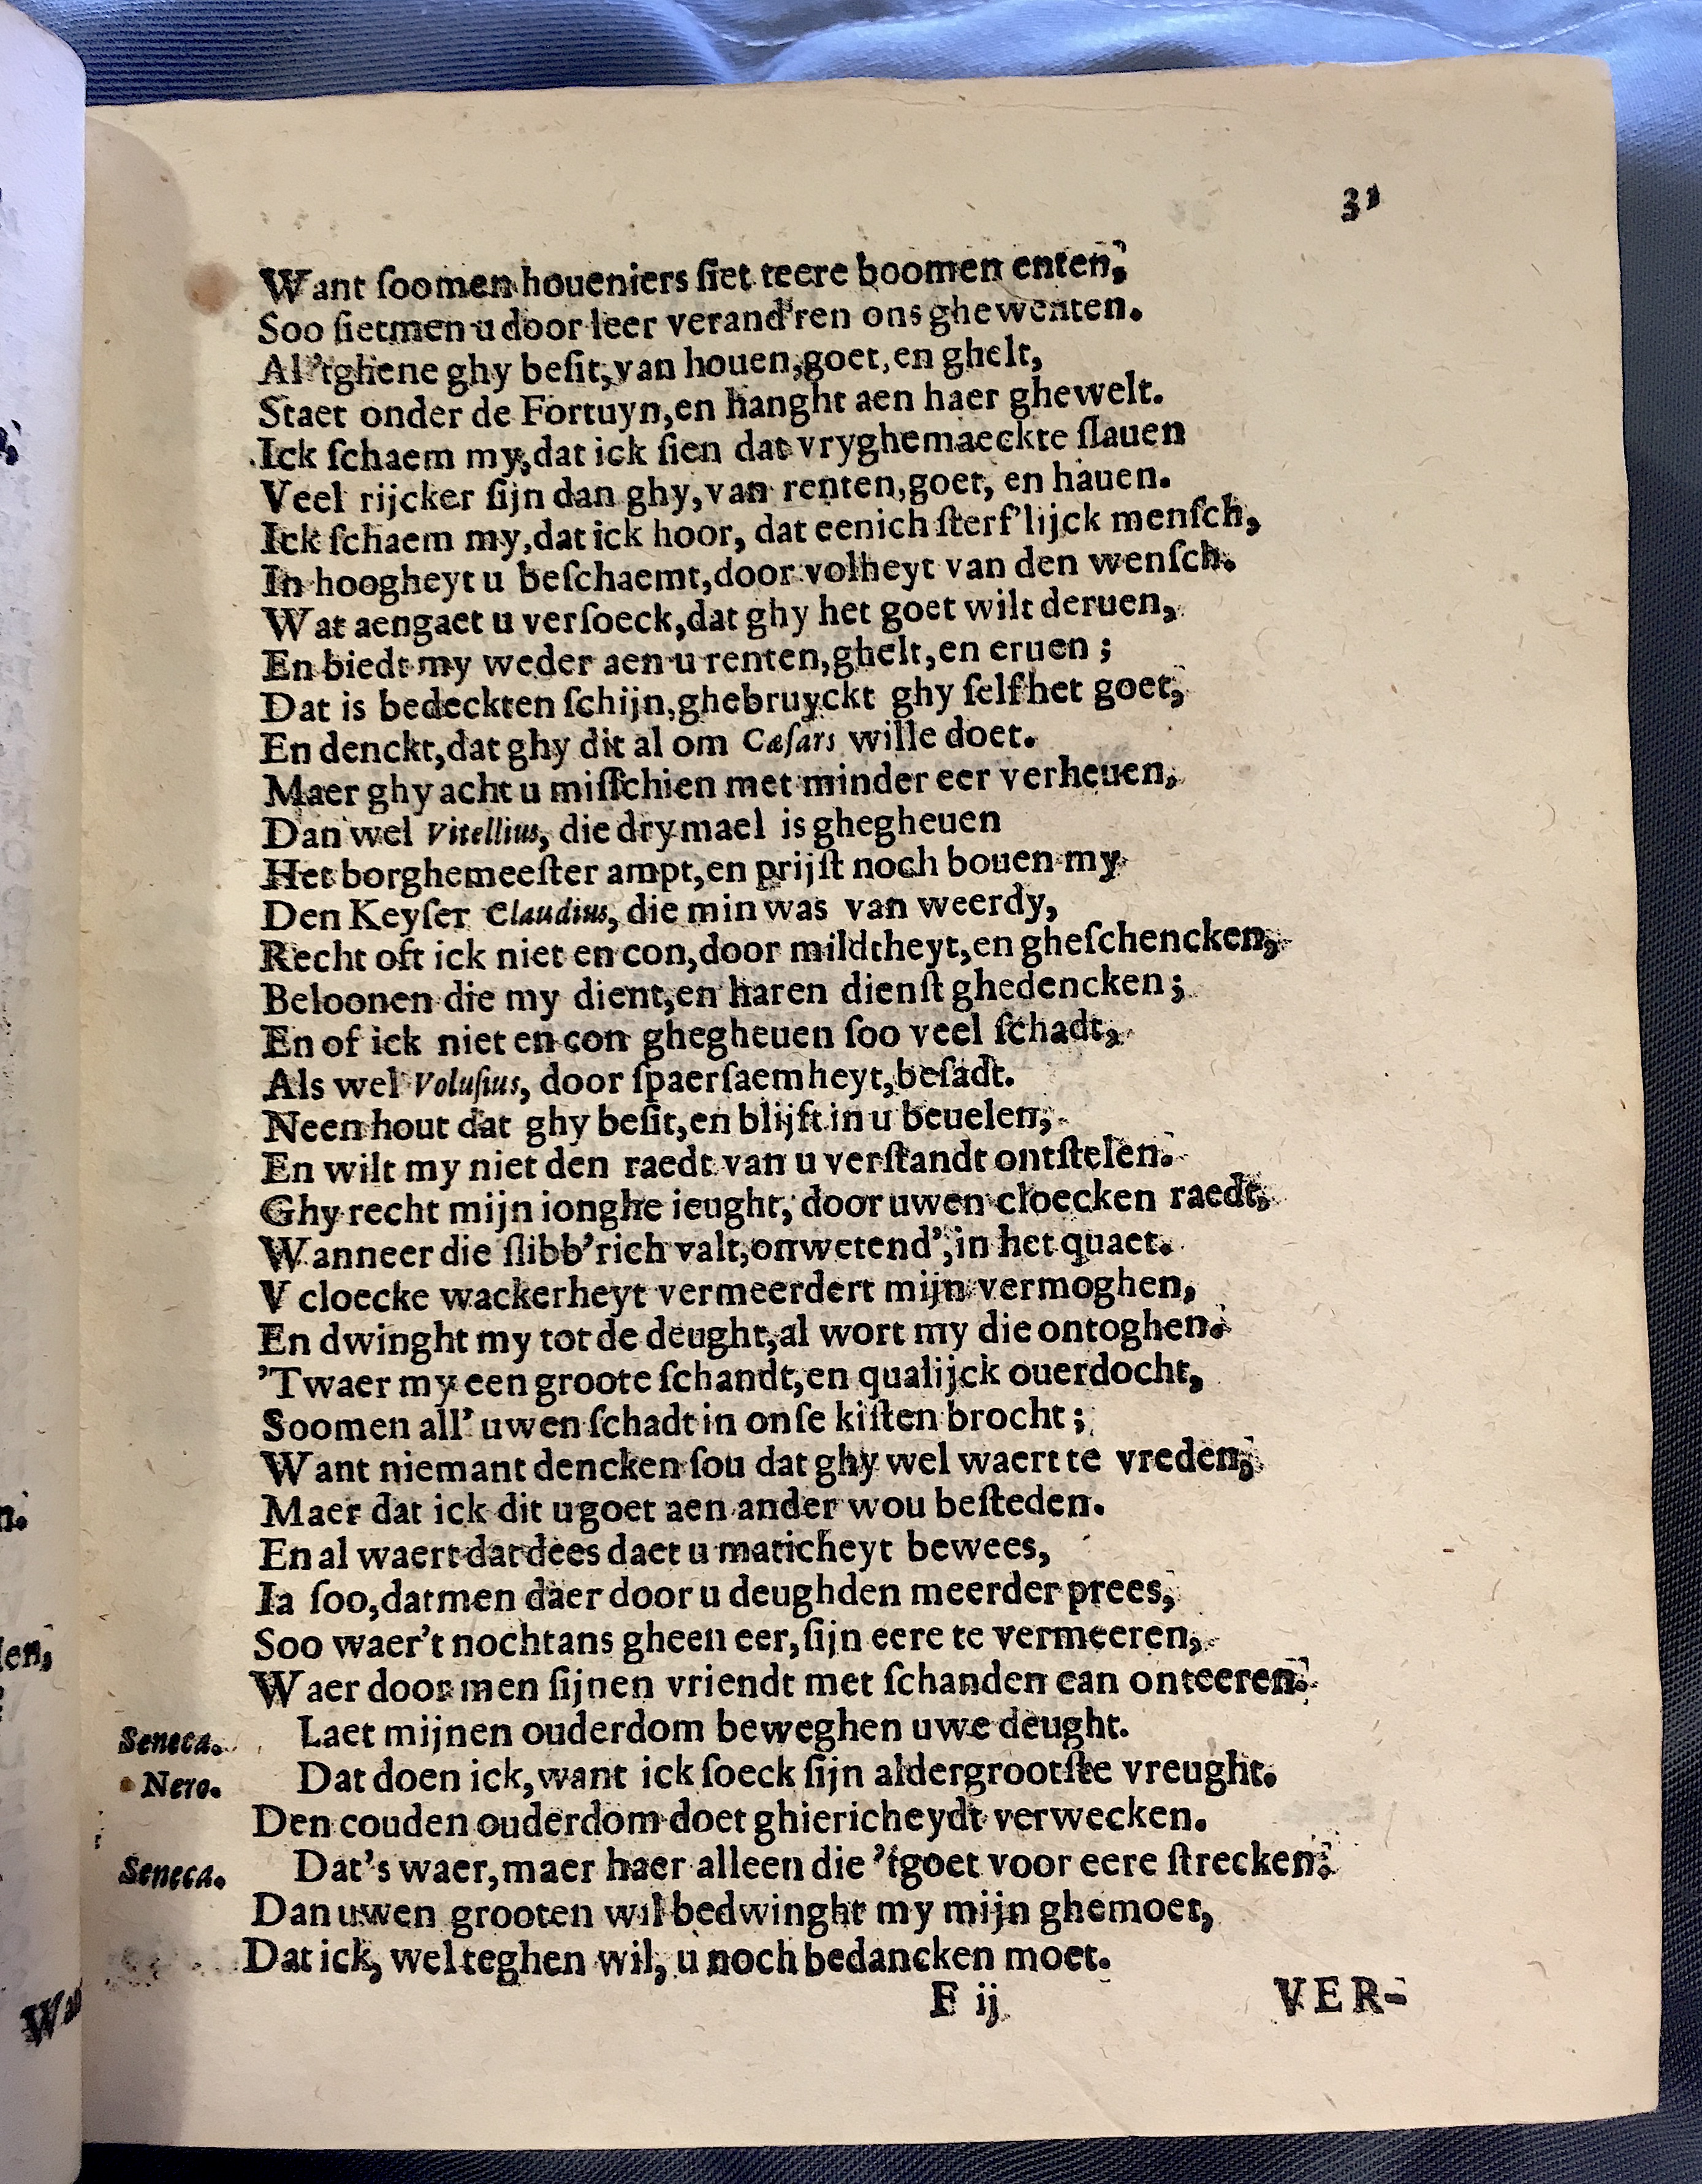 31
Want ſoomen houeniers ſiet teere boomen enten,
Soo ſietmen u door leer verand'ren ons ghewenten.
Al 'tghene ghy beſit, van houen, goet, en ghelt,
Staet onder de Fortuyn, en hanght aen haer ghewelt.
Ick ſchaem my, dat ick ſien dat vryghemaeckte ſlauen
Veel rijcker ſijn dan ghy, van renten, goet, en hauen.
Ick ſchaem my, dat ick hoor, dat eenich ſterf'lijck menſch,
In hoogheyt u beſchaemt, door volheyt van den wenſch.
Wat aengaet u verſoeck, dat ghy het goet wilt deruen,
En biedt my weder aen u renten, ghelt, en eruen ;
Dat is bedeckten ſchijn, ghebruyckt ghy ſelf het goet,
En denckt, dat ghy dit al om Cæſars wille doet.
Maer ghy acht u miſſchien met minder eer verheuen,
Dan wel Vitellius, die drymael is ghegheuen
Het borghemeeſter ampt, en prijſt noch bouen my
Den Keyſer Claudius, die min was van weerdy,
Recht oft ick niet en con, door mildtheyt, en gheſchencken,
Beloonen die my dient, en haren dienſt ghedencken ;
En of ick niet en con ghegheuen ſoo veel ſchadt,
Als wel Voluſius, door ſpaerſaemheyt, beſadt.
Neen hout dat ghy beſit, en blijft in u beuelen,
En wilt my niet den raedt van u verſtandt ontſtelen.
Ghy recht mijn ionghe ieught, door uwen cloecken raedt,
Wanneer die ſlibb'rich valt, onwetend', in het quaet.
V cloecke wackerheyt vermeerdert mijn vermoghen,
En dwinght my tot de deught, al wort my die ontoghen.
'Twaer my een groote ſchandt, en qualijck ouerdocht,
Soomen all' uwen ſchadt in onſe kiſten brocht ;
Want niemant dencken ſou dat ghy wel waert te vreden,
Maer dat ick dit u goet aen ander wou beſteden.
En al waert dat dees daet u maticheyt bewees,
Ia ſoo, datmen daer door u deughden meerder prees,
Soo waer't nochtans gheen eer, ſijn eere te vermeeren,
Waer door men ſijnen vriendt met ſchanden can onteeren.
Seneca. Laet mijnen ouderdom beweghen uwe deught.
Nero. Dat doen ick, want ick ſoeck ſijn aldergrootſte vreught.
Den couden ouderdom doet ghiericheydt verwecken.
Seneca. Dat's waer, maer haer alleen die 'tgoet voor eere ſtrecken.
Dan uwen grooten wil bedwinght my mijn ghemoet,
Dat ick, wel teghen wil, u noch bedancken moet.
F ij
VER-